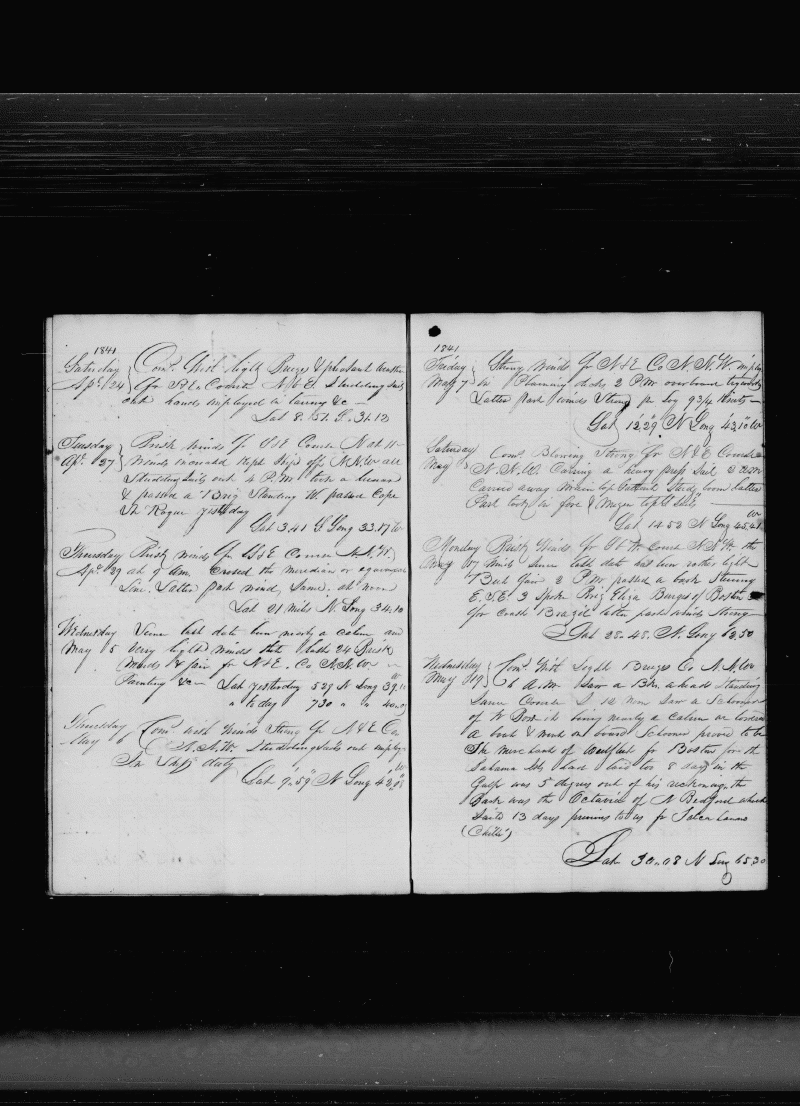 1841
Saturday Com. With light Breeze & pleasant weather
Apl 24 fr S & E. Course N b E. Studding Sails
out hands imployed in taring &c —
Lat 8.51. S. 31.12
Tuesday Brisk Winds fr S & E Course N at 11
Apl. 27 Winds increased Kept Ship off N.N.W all
Studding Sails out 4 P.M. took a
& passed a Brig Standing W. passed Cape
St Roque yesterday
Lat 3.41 S. Long 33.17 W
Thursday Brisk Winds fr S & E Course N.N.W.
Apl. 29 at 9 am. Crossed the meridian or equinox
Line. Latter part wind, same. at noon
Lat 21 miles N. Long 34.10
Wednesday Since last date been nearly a calm and
May 5 very light winds this last 24 Brisk
Winds & fair fr N & E. Co N.N.W —
Painting &c — Lat yesterday 528 N Long 39.10
" to day 730 " " 40.
Thursday Com with Winds Strong fr N & E Co.
May 6 N.N.W. Studdingsails out imploy
In Ships duty
Lat 9"59" N Long 42,08 W
1841
Friday Strong Winds fr N & E Co N.N.W. imploy
May 7 in Planning decks 2 P.M. overboard tryworks
Latter part winds Strong pr Log 9 3/4 Knots —
Lat 12,29 N Long 43,10 W
Saturday Com. Blowing Strong fr N & E Course
May N.N.W. Carring a heavy press Sail
Carried away main top Gallant Stud. boom latter
Part took in fore & Mizen top G Sails
Lat 14.53 N Long 45,41 W
Monday Brisk Winds fr S b W Course N.N.W. the
May 17 Winds since last date has been rather light
Bent 2 P.M passed a bark Steering
E.S.E. & Spoke Brig Eliza Burges of Boston
for coast Brazils latter part winds Strong —
Lat 28.45. N. Long 62.50
Wednesday Com. With Light Breezes Co N.N.W
May 19 6 A.M. Saw a Brk, ahead Standing
Same Course S 12 noon Saw a Schooner
of W Bow it being nearly a calm we lowered
a boat & went on board Schooner proved to be
The merchant of Wellfleet for Boston for the
Bahama Isls had laid too 8 days in the
Gulf was 5 degrees out of his reckoning, the
Bark was the Octavia of N Bedford which
Sailed 13 days previous to us fr Talcahuano
(Chilli)
Lat 30.08 N Long 65.30